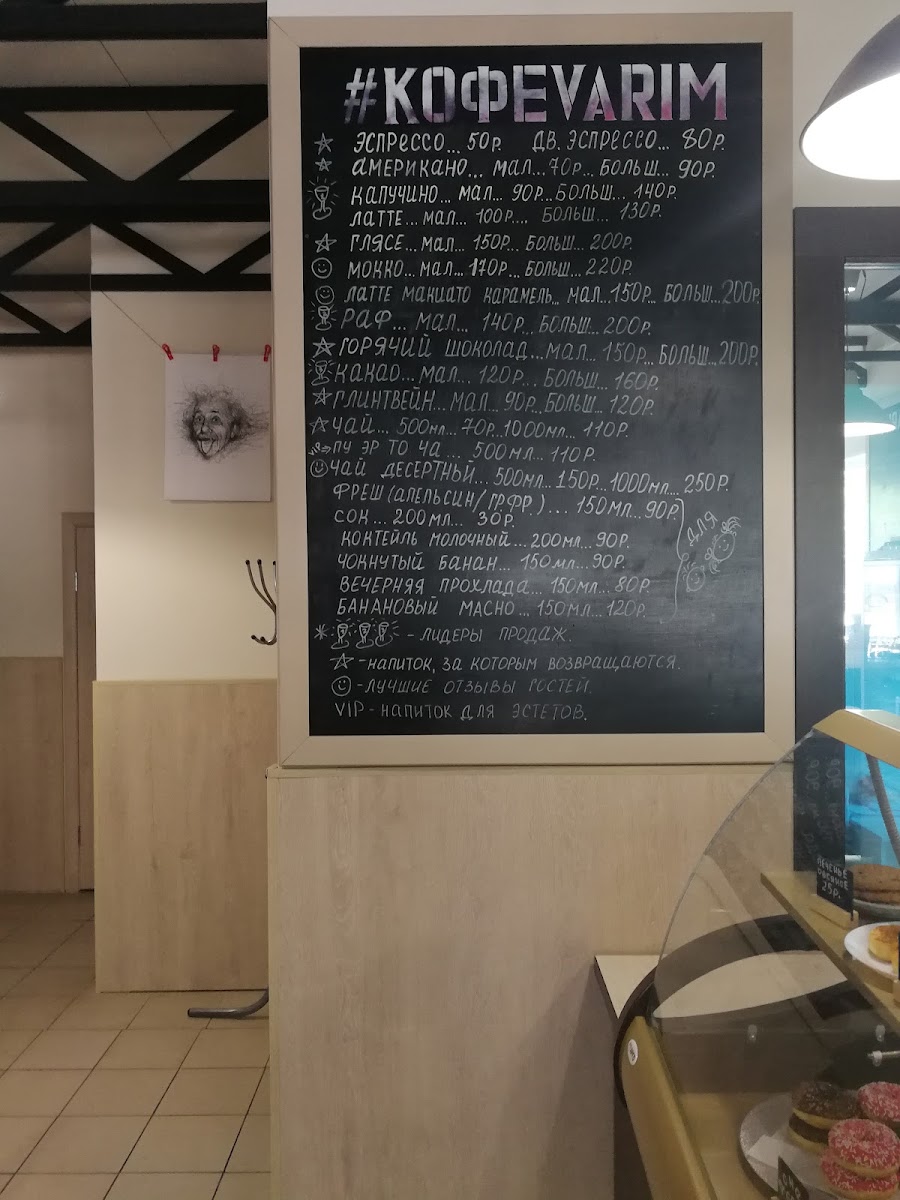 #КОФЕVARIM
ЭСПРЕССО... 50Р. ДВ. ЭСПРЕССО... 80Р.
АМЕРИКАНО... МАЛ...70Р... БОЛЬШ... 90Р.
КАПУЧИНО...МАЛ... 90Р...БОЛЬШ... 140Р.
ЛАТТЕ...МАЛ... 100Р.... БОЛЬШ... 130Р.
ГЛЯСЕ...МАЛ... 150Р... БОЛЬШ... 200Р.
МОККО...МАЛ...170Р...БОЛЬШ...220Р.
ЛАТТЕ МАКИАТО КАРАМЕЛЬ... МАЛ...150Р... БОЛЬШ...200Р.
РАФ... МАЛ... 140Р... БОЛЬШ... 200Р.
ГОРЯЧИЙ ШОКОЛАД...МАЛ... 150Р...БОЛЬШ...200Р.
КАКАО...МАЛ...120Р... БОЛЬШ... 160Р.
ГЛИНТВЕЙН...МАЛ...90Р...БОЛЬШ... 120Р.
ЧАЙ... 500МЛ...70Р...1000МЛ... 110Р.
VIP ПУ ЭР ТО ЧА ... 500МЛ...110Р.
ЧАЙ ДЕСЕРТНЫЙ... 500МЛ...150Р...1000МЛ...250Р.
ФРЕШ (АПЕЛЬСИН/ГРФР)... 150МЛ...90Р.
СОК...200МЛ... 30Р.
КОКТЕЙЛЬ МОЛОЧНЫЙ...200МЛ...90Р.
ЧОКНУТЫЙ БАНАН... 150МЛ...90Р.
ВЕЧЕРНЯЯ ПРОХЛАДА...150МЛ...80Р.
БАНАНОВЫЙ МАСНО...150МЛ...120Р.
ДЛЯ
* - ЛИДЕРЫ ПРОДАЖ.
-НАПИТОК, ЗА КОТОРЫМ ВОЗВРАЩАЮТСЯ.
-ЛУЧШИЕ ОТЗЫВЫ ГОСТЕЙ.
VIP - НАПИТОК ДЛЯ ЭСТЕТОВ.
ПЕЧЕНЬЕ
ОВСЯНОЕ
25Р.